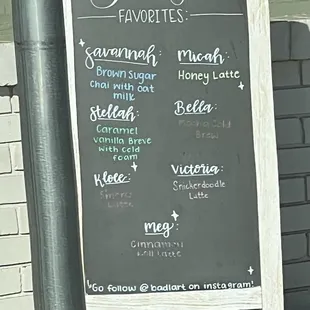 FAVORITES:
Savannah:
Brown Sugar
chai with oat
milk
Micah:
Honey Latte
Stellah:
Caramel
vanilla Breve
with cold
foam
Bella:
Mocha Cold
Brew
Kloee:
Latte
Victoria:
Snickerdoodle
Latte
Meg:
Cinnamon
Roll Latte
Go follow @badlart on instagram!